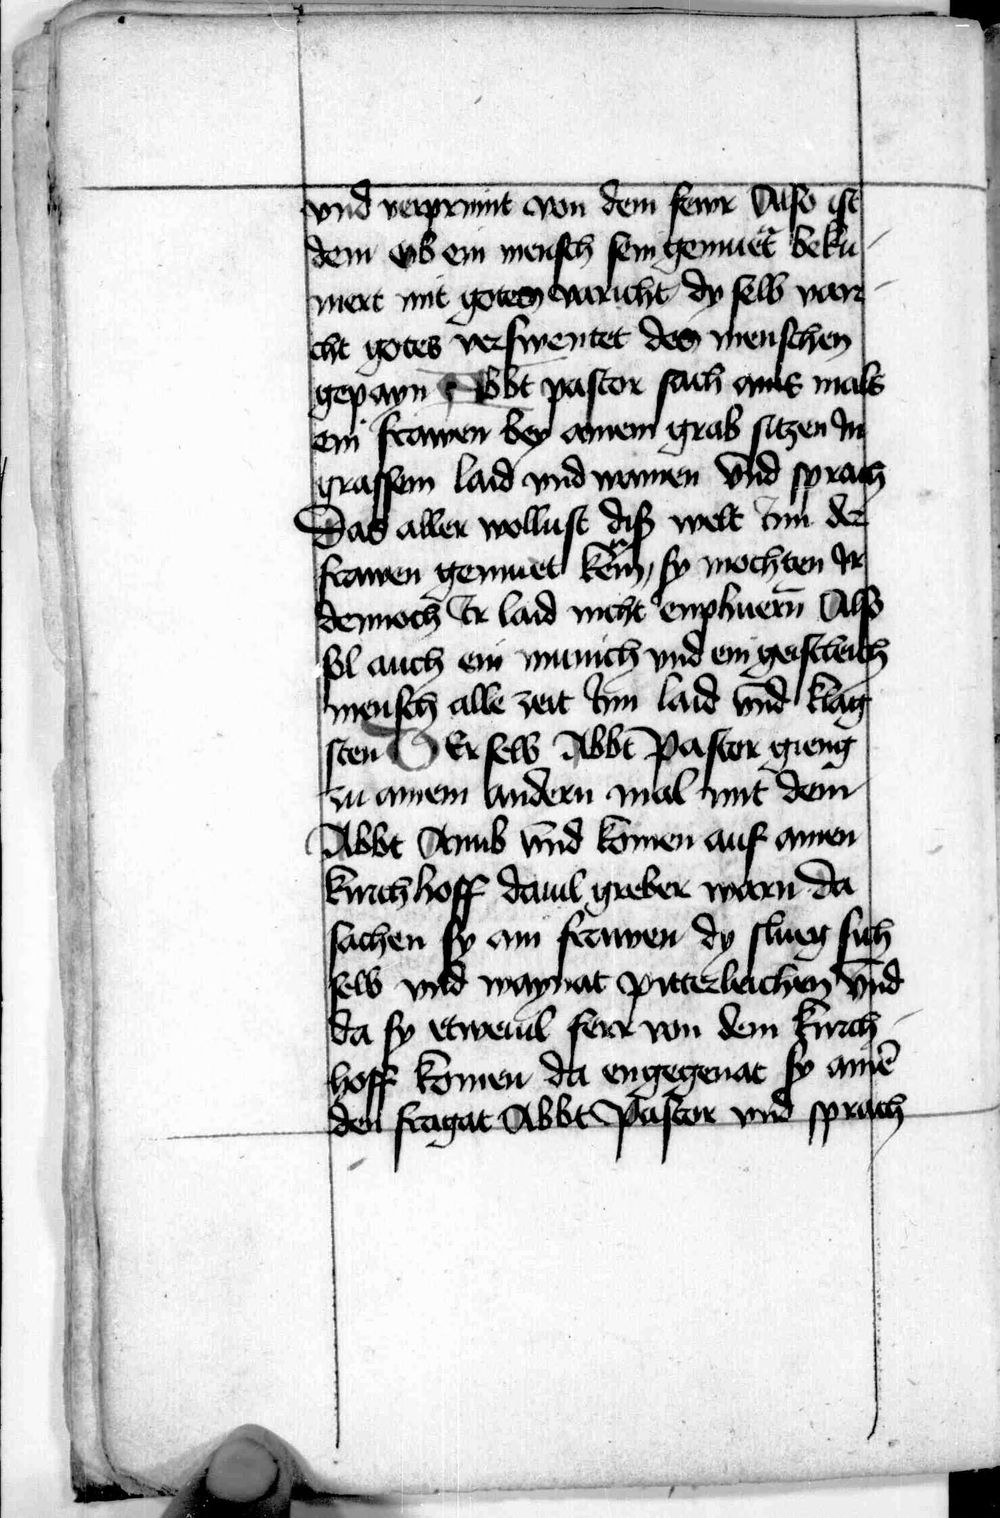 vnd verprinnt von dem fewr Also ist
dem ob ein mensch sein gemuet beku
mert mit gotes varicht dy selb vari
cht gotes verswentet des menschen
gepayn Abbt pastor sach ains mals
ein frawen bey ainem grab sitzen In
grassem laid vnd wainen vnd sprach
Das aller wollust diß welt Inn der
frawen gemuet kem sy mochten Ir
dennoch Ir laid nicht enphuern Also
sol auch ein munich vnd ein geistleich
mensch alle zeit Inn laid vnd klag
sten DEr selb Abbt Pastor gieng
zu ainem andern mal mit dem
Abbt Anub vnd komen auf ainen
kirchhoff da uil greber warn da
sachen sy ain frawen dy slueg sich
selb vnd waynat pitterleichen vnd
da sy etweuil ferr von dem kirch
hoff komen da engegenat sy ainē
den fragat Abbt Pastor vnd sprach